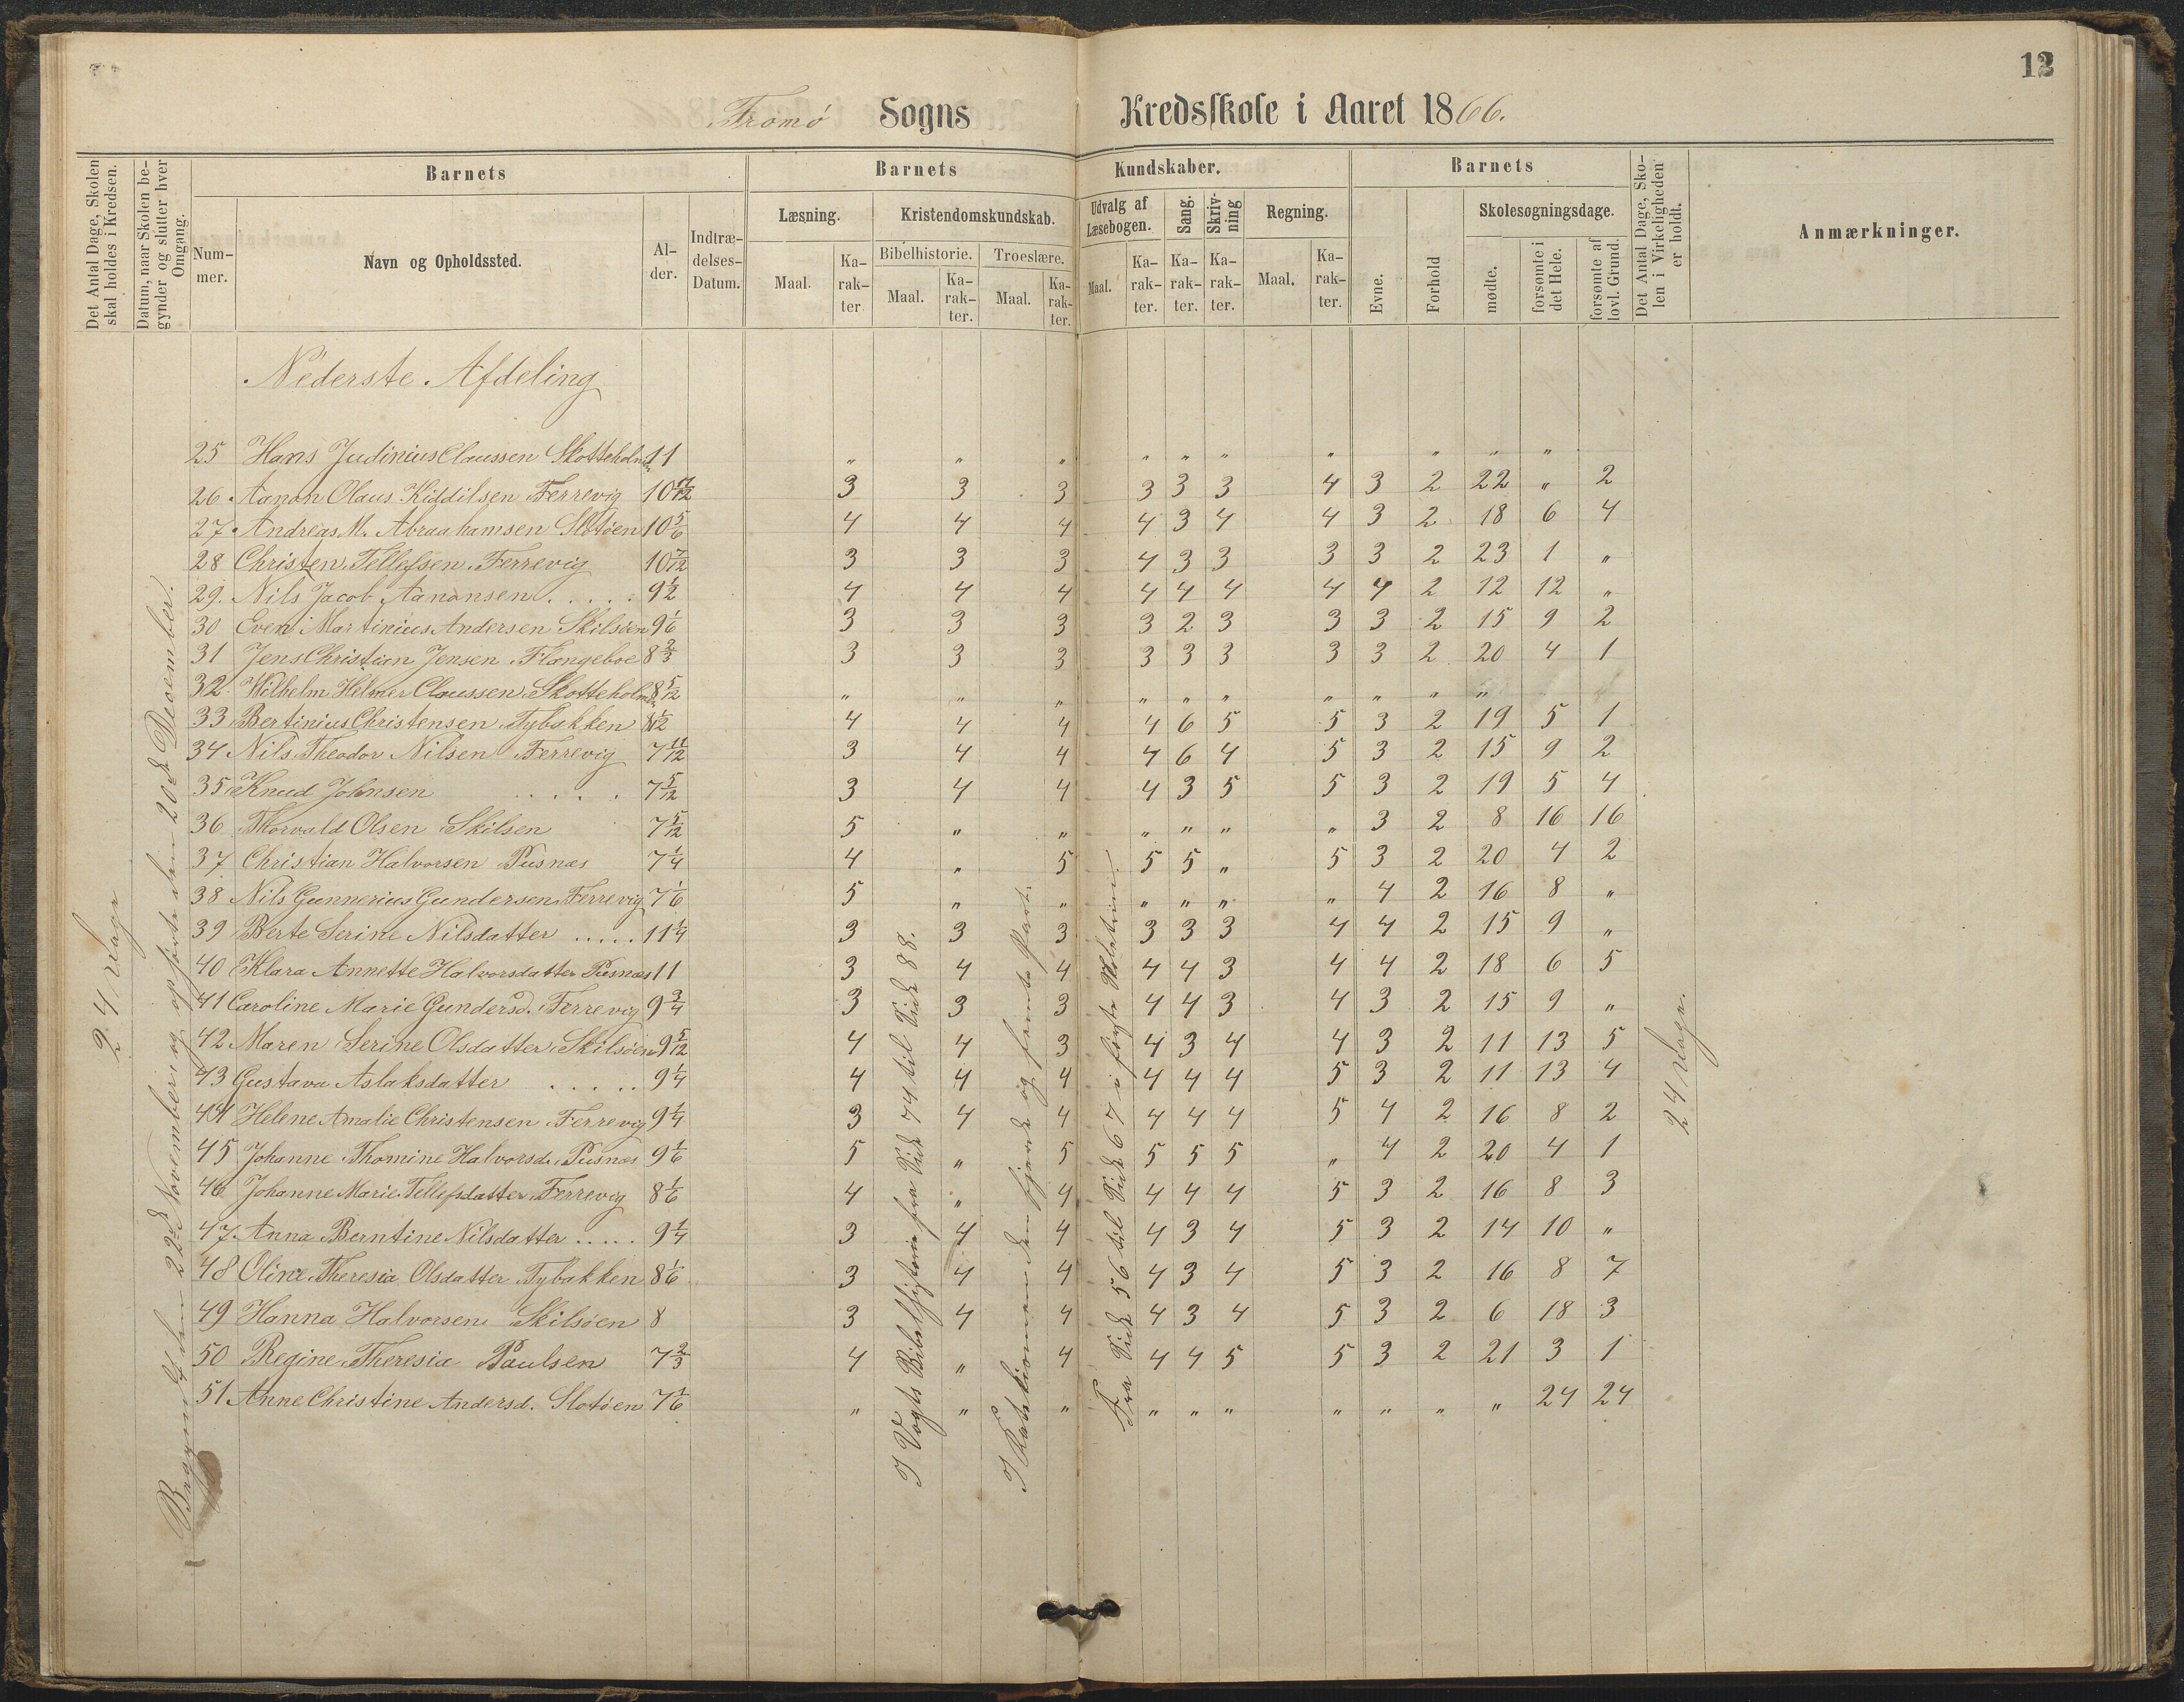 12
Tromö Sogns Kredsskole i Aaret 1866.
Det Antal Dage, Skolen skal holdes i Kredsen.
Datum, naar Skolen begynder og slutter hver Omgang.
Barnets
Nummer.
Navn og Opholdssted.
Alder.
Indtrædelses-Datum.
Barnets Kundskaber.
Læsning.
Maal.
Karakter
Kristendomskundskab.
Bibelhistorie.
Maal.
Karakter.
Troeslære.
Maal.
Karakter.
Udvalg af Læsebogen.
Maal.
Karakter.
Sang.
Karakter.
Skrivning
Karakter.
Regning.
Maal.
Karakter.
Barnets
Evne.
Forhold
Skolesøgningsdage.
mødte.
forsømte i det Hele.
forsømte af lovl. Grund.
Det Antal Dage, Skolen i Virkeligheden er holdt.
Anmærkninger.
Nederste Afdeling
25 Hans Judinius Claussen Skotteholmen 11 " " " " " " " " " "
26 Aanon Olaus Kiddilsen Færrevig 10 7/12 3 3 3 3 3 3 4 3 2 22 " 2
27 Andreas M. Abraahamsen Slotöen 10 5/6 4 4 4 4 3 4 4 3 2 18 6 4
28 Christen Tellefsen Færrevig 10 7/12 3 3 3 4 3 3 3 3 2 23 1 "
29. Nils Jacob Aanonsen ..... 9 1/2 4 4 4 4 4 4 4 4 2 12 12 "
30 Even Martinius Andersen Skilsöen 9 1/6 3 3 3 3 2 3 3 3 2 15 9 2
31 Jens Christian Jensen Flangeboe 8 2/3 3 3 3 3 3 3 3 3 2 20 4 1
32. Wilhelm Helmer Claussen Skotteholmen 8 5/12 " " " " " " " " " "
33 Bertinius Christensen Tybakken 8 1/2 4 4 4 4 6 5 5 3 2 19 5 1
34 Nils Theodor Nilsen Færrevig 7 11/12 3 4 4 4 6 4 5 3 2 15 9 2
35 Knud Johnsen ..... 7 5/12 3 4 4 4 3 5 5 3 2 19 5 4
36 Thorvald Olsen Skilsen 7 5/12 5 " " " " " " 3 2 8 16 16
37 Christian Halvorsen Pusnæs 7 1/4 4 " 5 5 5 " 5 3 2 20 4 2
38 Nils Gunnerius Gundersen Færrevig 7 1/6 5 " " " " " " 4 2 16 8 "
39 Berte Serine Nilsdatter ..... 11 1/4 3 3 3 3 3 3 4 4 2 15 9 "
40 Klara Annette Halvorsdatter Pusnæs 11 3 4 4 4 4 3 4 4 2 18 6 5
41 Caroline Marie Gundersd. Færrevig 9 3/4 3 3 3 4 4 3 4 3 2 15 9 "
42 Maren Serine Olsdatter Skilsöen 9 5/12 4 4 3 4 3 4 4 3 2 11 13 5
43 Gustava Aslaksdatter ..... 9 1/4 4 4 4 4 4 4 5 3 2 11 13 4
44 Helene Amalie Christensen Færrevig 9 1/4 3 4 4 4 4 4 5 4 2 16 8 2
45 Johanne Thomine Halvorsd. Pusnæs 9 1/6 5 " 5 5 5 5 " 4 2 20 4 1
46 Johanne Marie Tellefsdatter Færrevig 8 1/6 4 " 4 4 4 4 5 3 2 16 8 3
47 Anna Berntine Nilsdatter ..... 9 1/4 3 4 4 4 3 4 5 3 2 14 10 "
48 Oline Theresia Olsdatter Tybakken 8 1/6 3 4 4 4 3 4 5 3 2 16 8 7
49 Hanna Halvorsen Skilsöen 8 3 4 4 4 3 4 5 3 2 6 18 3
50 Regine Theresia Paulsen 7 2/3 4 " 4 4 4 5 5 3 2 21 3 1
51 Anne Christine Andersd. Slotöen 7 1/6 " " " " " " " " " " 24 24
24 Dage
Begyndt den 22de November og ophørte den 20de December.
I Vogts Bibelhistorie fra Side 74 til Side 88.
I Katekismen den fjerde og femte Part.
Fra Side 56 til Side 67 i første Skoletrin.
24 Dage.